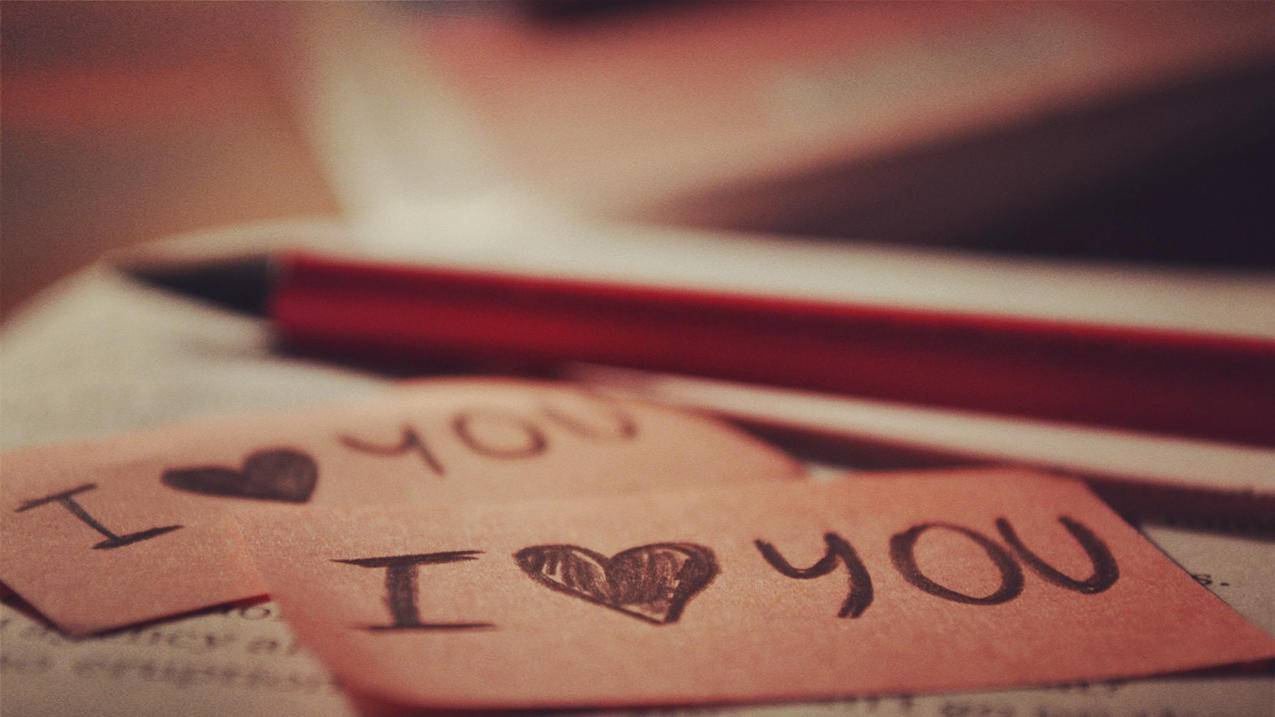 I ♥ YOU
I ♥ YOU